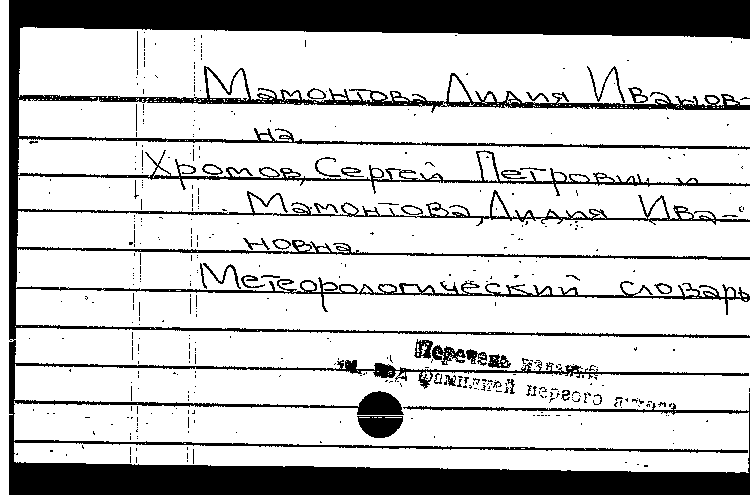 Мамонтова, Лидия Иванов-
на.
Хромов, Сергей Петрович и
Мамонтова, Лидия Ива-
новна.
Метеорологический словарь
Перечень изданий
см. под фамилией первого автора